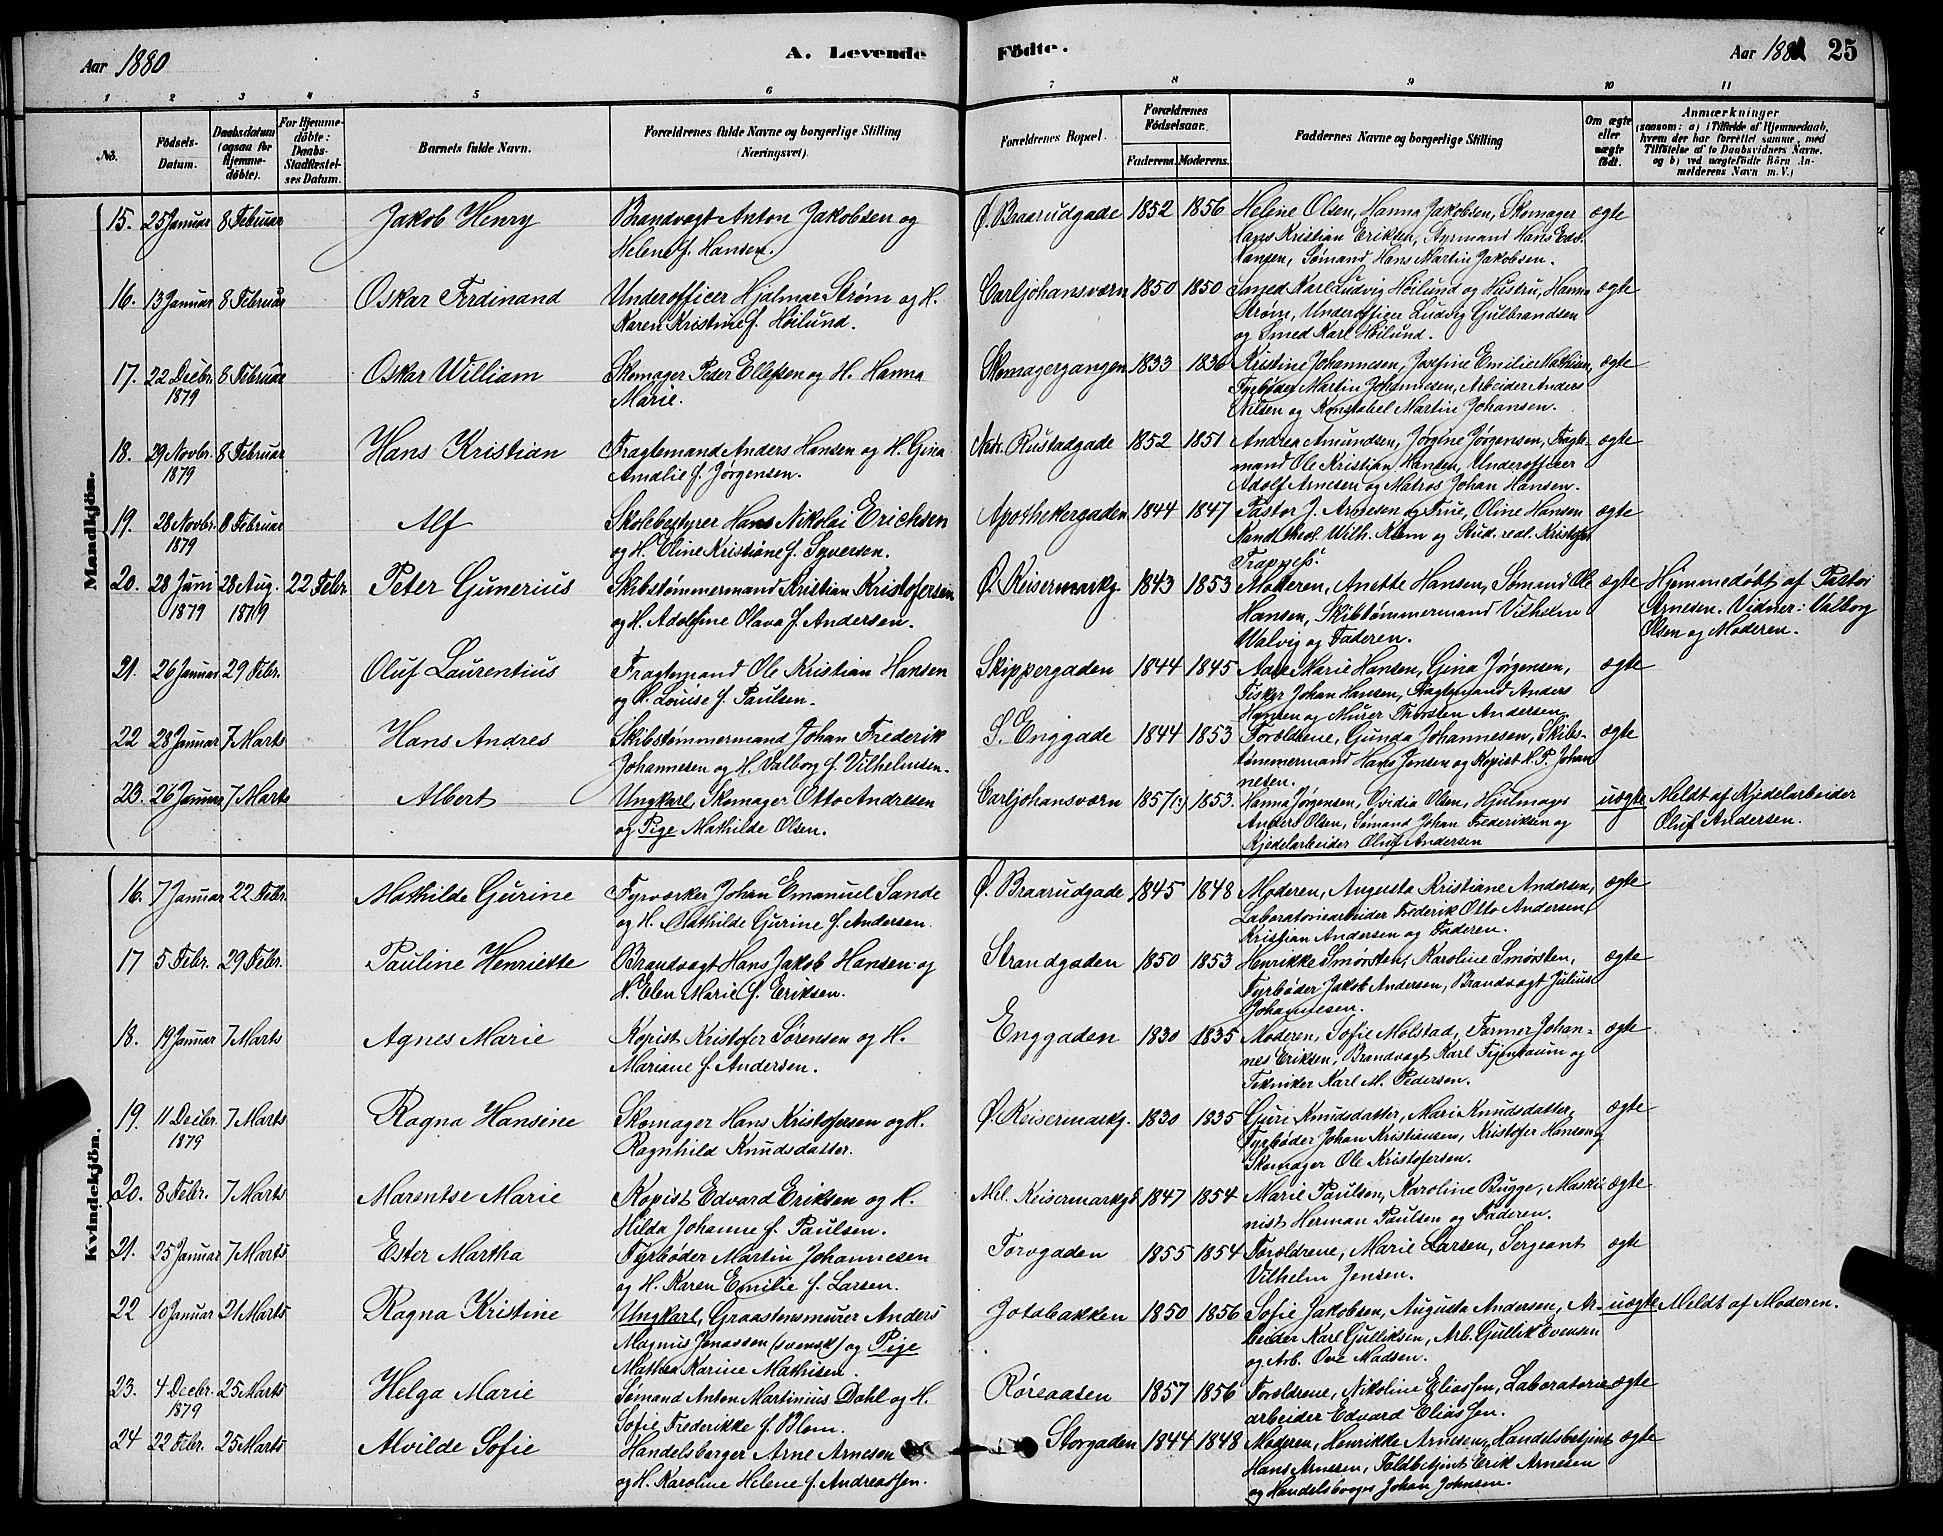 Aar 1880
A. Levende Fødte.
Aar 1880 25
1 2 3 4 5 6 7 8 9 10 11
No. Födsels-Datum. Daabsdatum (ogsaa for Hjemme-döbte). For Hjemme-döbte: Daabs-Stadfæstel-ses Datum. Barnets fulde Navn. Forældrenes fulde Navne og borgerlige Stilling (Næringsvei). Forældrenes Bopæl. Forældrenes Födselsaar. Faderens. Moderens. Faddernes Navne og borgerlige Stilling Om ægte eller uægte födt. Anmærkninger (saasom: a) i Tilfælde af Hjemmedaab, hvem der har forrettet samme, med Tilföielse af to Daabsvidners Navne, og b) ved uægtefödte Börn An-melderens Navn m. V.)
Mandkjön.
15. 25 Januar 8 Februar Jakob Henry Brandvagt Anton Jakobsen og Ø. Braarudgade 1852 1856 Helene Olsen, Hanna Jakobsen, Skomager ægte
Helene f. Hansen. Hans Kristian Eriksen, Styrmand Hans Edv.
Hansen, Sømand Hans Martin Jakobsen.
16. 13 Januar 8 Februar Oskar Ferdinand Underofficer Hjalmar Strøm og H. Carljohansværn 1850 1850 Smed Karl Ludvig Höilund og Hustru, Hanna ægte
Karen Kristine f. Höilund. Strøm, Underofficer Ludvig Gulbrandsen
og Smed Karl Höilund.
17. 22 Decbr. 8 Februar Oskar William Skomager Peder Ellefsen og H. Hanna Skomagergangen 1833 1836 Kristine Johannesen, Josefine Emilie Mathisen, ægte
1879 Marie. Fyrbøder Martin Johannesen, Arbeider Anders
Nilsen og Konstabel Martin Johansen.
18. 29 Novbr. 8 Februar Hans Kristian Fragtemand Anders Hansen og H. Gina Nedr. Rustadgade 1852 1851 Andrea Amundsen, Jørgine Jørgensen, Fragte- ægte
1879 Amalie f. Jørgensen. mand Ole Kristian Hansen, Underofficer
Adolf Arnesen og Matros Johan Hansen.
19. 28 Novbr. 8 Februar Alf Skolebestyrer Hans Nikolai Erichsen Apothekergaden 1844 1847 Pastor J. Arnesen og Frue, Oline Hansen ægte
1879 og H. Oline Kristiane f. Syversen. Kand. theol. Wilh. Ram og Stud. real. Kristofer
Trappes.
20. 28 Juni 28 Aug. 22 Febr. Peter Gunerius Skibstømmermand Kristian Kristofersen Ø. Keisermarkg. 1843 1853 Moderen, Anette Hansen, Sømand Ole ægte Hjemmedøbt af Pastor
1879 1879 og H. Adolfine Olava f. Andersen. Hansen, Skibtømmermand Vilhelm Arnesen. Vidner: Valborg
Walvig og Faderen. Olsen og Moderen.
21. 26 Januar 29 Febr. Oluf Laurentius Fragtemand Ole Kristian Hansen Skippergaden 1844 1845 Marie Hansen, Gina Jørgensen, ægte
og H. Louise f. Paulsen. Fisker Johan Hansen, Fragtemand Anders
Hansen og Murer Thorsten Andersen
22 28 Januar 7 Marts Hans Andres Skibstømmermand Johan Frederik S. Enggade 1844 1853 Forældrene, Gunda Johannesen, Skibs- ægte
Johannesen og H. Valborg f. Vilhelmsen. tømmermand Hans Jensen og Kopist H. P. Johan
nesen.
23. 26 Januar 7 Marts Albert Ungkarl, Skomager Otto Andresen Carljohansværn 1857 1853. Hanna Jørgensen, Ovidia Olsen, Hjulmager uægte Meldt af Kjedelarbeider
og Pige Mathilde Olsen. Anders Olsen, Sømand Johan Frederiksen og Oluf Andersen.
Kjedelarbeider Oluf Andersen
Kvindekjön.
16. 7 Januar 22 Febr. Mathilde Gurine Fyrværker Johan Emanuel Sande Ø. Braarudgade 1845 1848 Moderen, Augusta Kristiane Andersen, ægte
og H. Mathilde Gurine f. Andersen. Laboratoriearbeider Frederik Otto Andersen,
Kristian Andersen og Faderen.
17 5 Febr. 29 Febr. Pauline Henriette Brandvagt Hans Jakob Hansen og Strandgaden 1850 1853 Henrikke Smørsten, Karoline Smørsten, ægte
H. Elen Marie f. Eriksen. Fyrbøder Jakob Andersen, Brandvagt Julius
Johannesen.
18. 19 Januar 7 Marts Agnes Marie Kopist Kristofer Sørensen og H. Enggaden 1830 1835 Moderen, Sofie Molstad, Farmer Johan- ægte
Mariane f. Andersen. nes Eriksen, Brandvagt Karl Figenbaum og
Tekniker Karl M. Pedersen.
19. 11 Decbr. 7 Marts Ragna Hansine Skomager Hans Kristofersen og H. Ø. Keisermarkg. 1830 1835 Guri Knudsdatter, Mari Knudsdatter, ægte
1879 Ragnhild Knudsdatter. Fyrbøder Johan Kristiansen, Kristofer Hansen og
Skomager Ole Kristofersen.
20. 8 Febr. 7 Marts Marentse Marie Kopist Edvard Eriksen og H. Mel. Keisermarkgd 1847 1854 Marie Paulsen, Karoline Bugge, Maski- ægte
Hilda Johanne f. Paulsen. nist Herman Paulsen og Faderen.
21. 25 Januar 7 Marts Ester Martha Fyrbøder Martin Johannesen Torvgaden 1855 1854 Forældrene, Marie Larsen, Sergeant ægte
og H. Karen Emilie f. Larsen. Vilhelm Jensen.
22 10 Januar 21 Marts Ragna Kristine Ungkarl, Graastensmurer Anders Jotabakken 1850 1856 Sofie Jakobsen, Augusta Andersen, Ar- uægte Meldt af Moderen.
Magnus Jonasson (svensk) og Pige beider Karl Gulliksen, Arb. Gullik Evensen
Mathea Karine Mathisen. og Arb. Ove Madsen.
23. 4 Decbr. 25 Marts Helga Marie Sømand Anton Martinius Dahl og H. Røreaasen 1857 1856 Forældrene, Nikoline Eliassen, Laboratorie- ægte
1879 Sofie Frederikke f. Blom. arbeider Edvard Eliassen.
24 22 Febr. 25 Marts Alvilde Sofie Handelsborger Arne Arnesen Storgaden 1844 1848 Moderen, Henrikke Arnesen, Handelsbetjent ægte
og H. Karoline Helene f. Andreassen. Hans Arnesen, Toldbetjent Erik Arnesen
og Handelsborger Johan Johnsen.